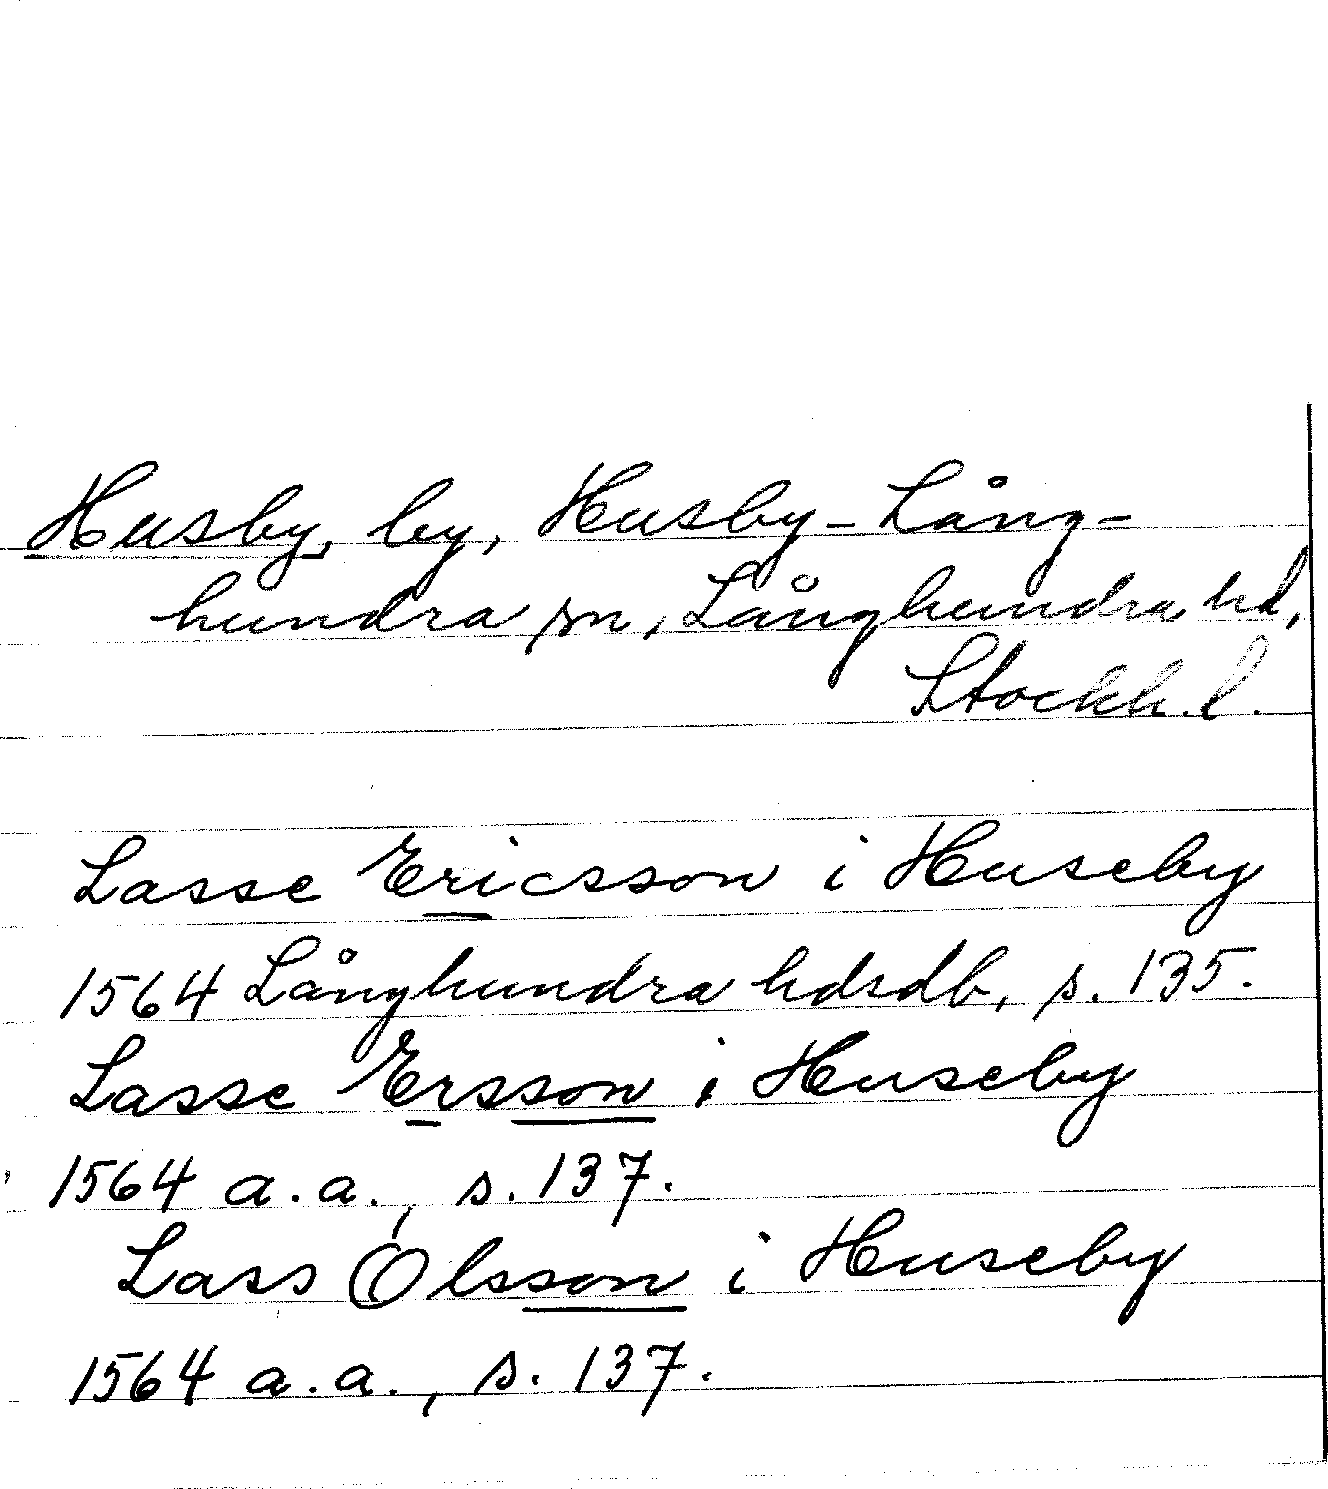 Husby, by, Husby-Lång-
hundra sn, Långhundra hd,
Stockh. l.
Lasse Ericsson i Huseby
1564 Långhundra hdsdb, s. 135.
Lasse Ersson i Huseby
1564 a.a., s. 137.
Lass Olsson i Huseby
1564 a.a., s. 137.